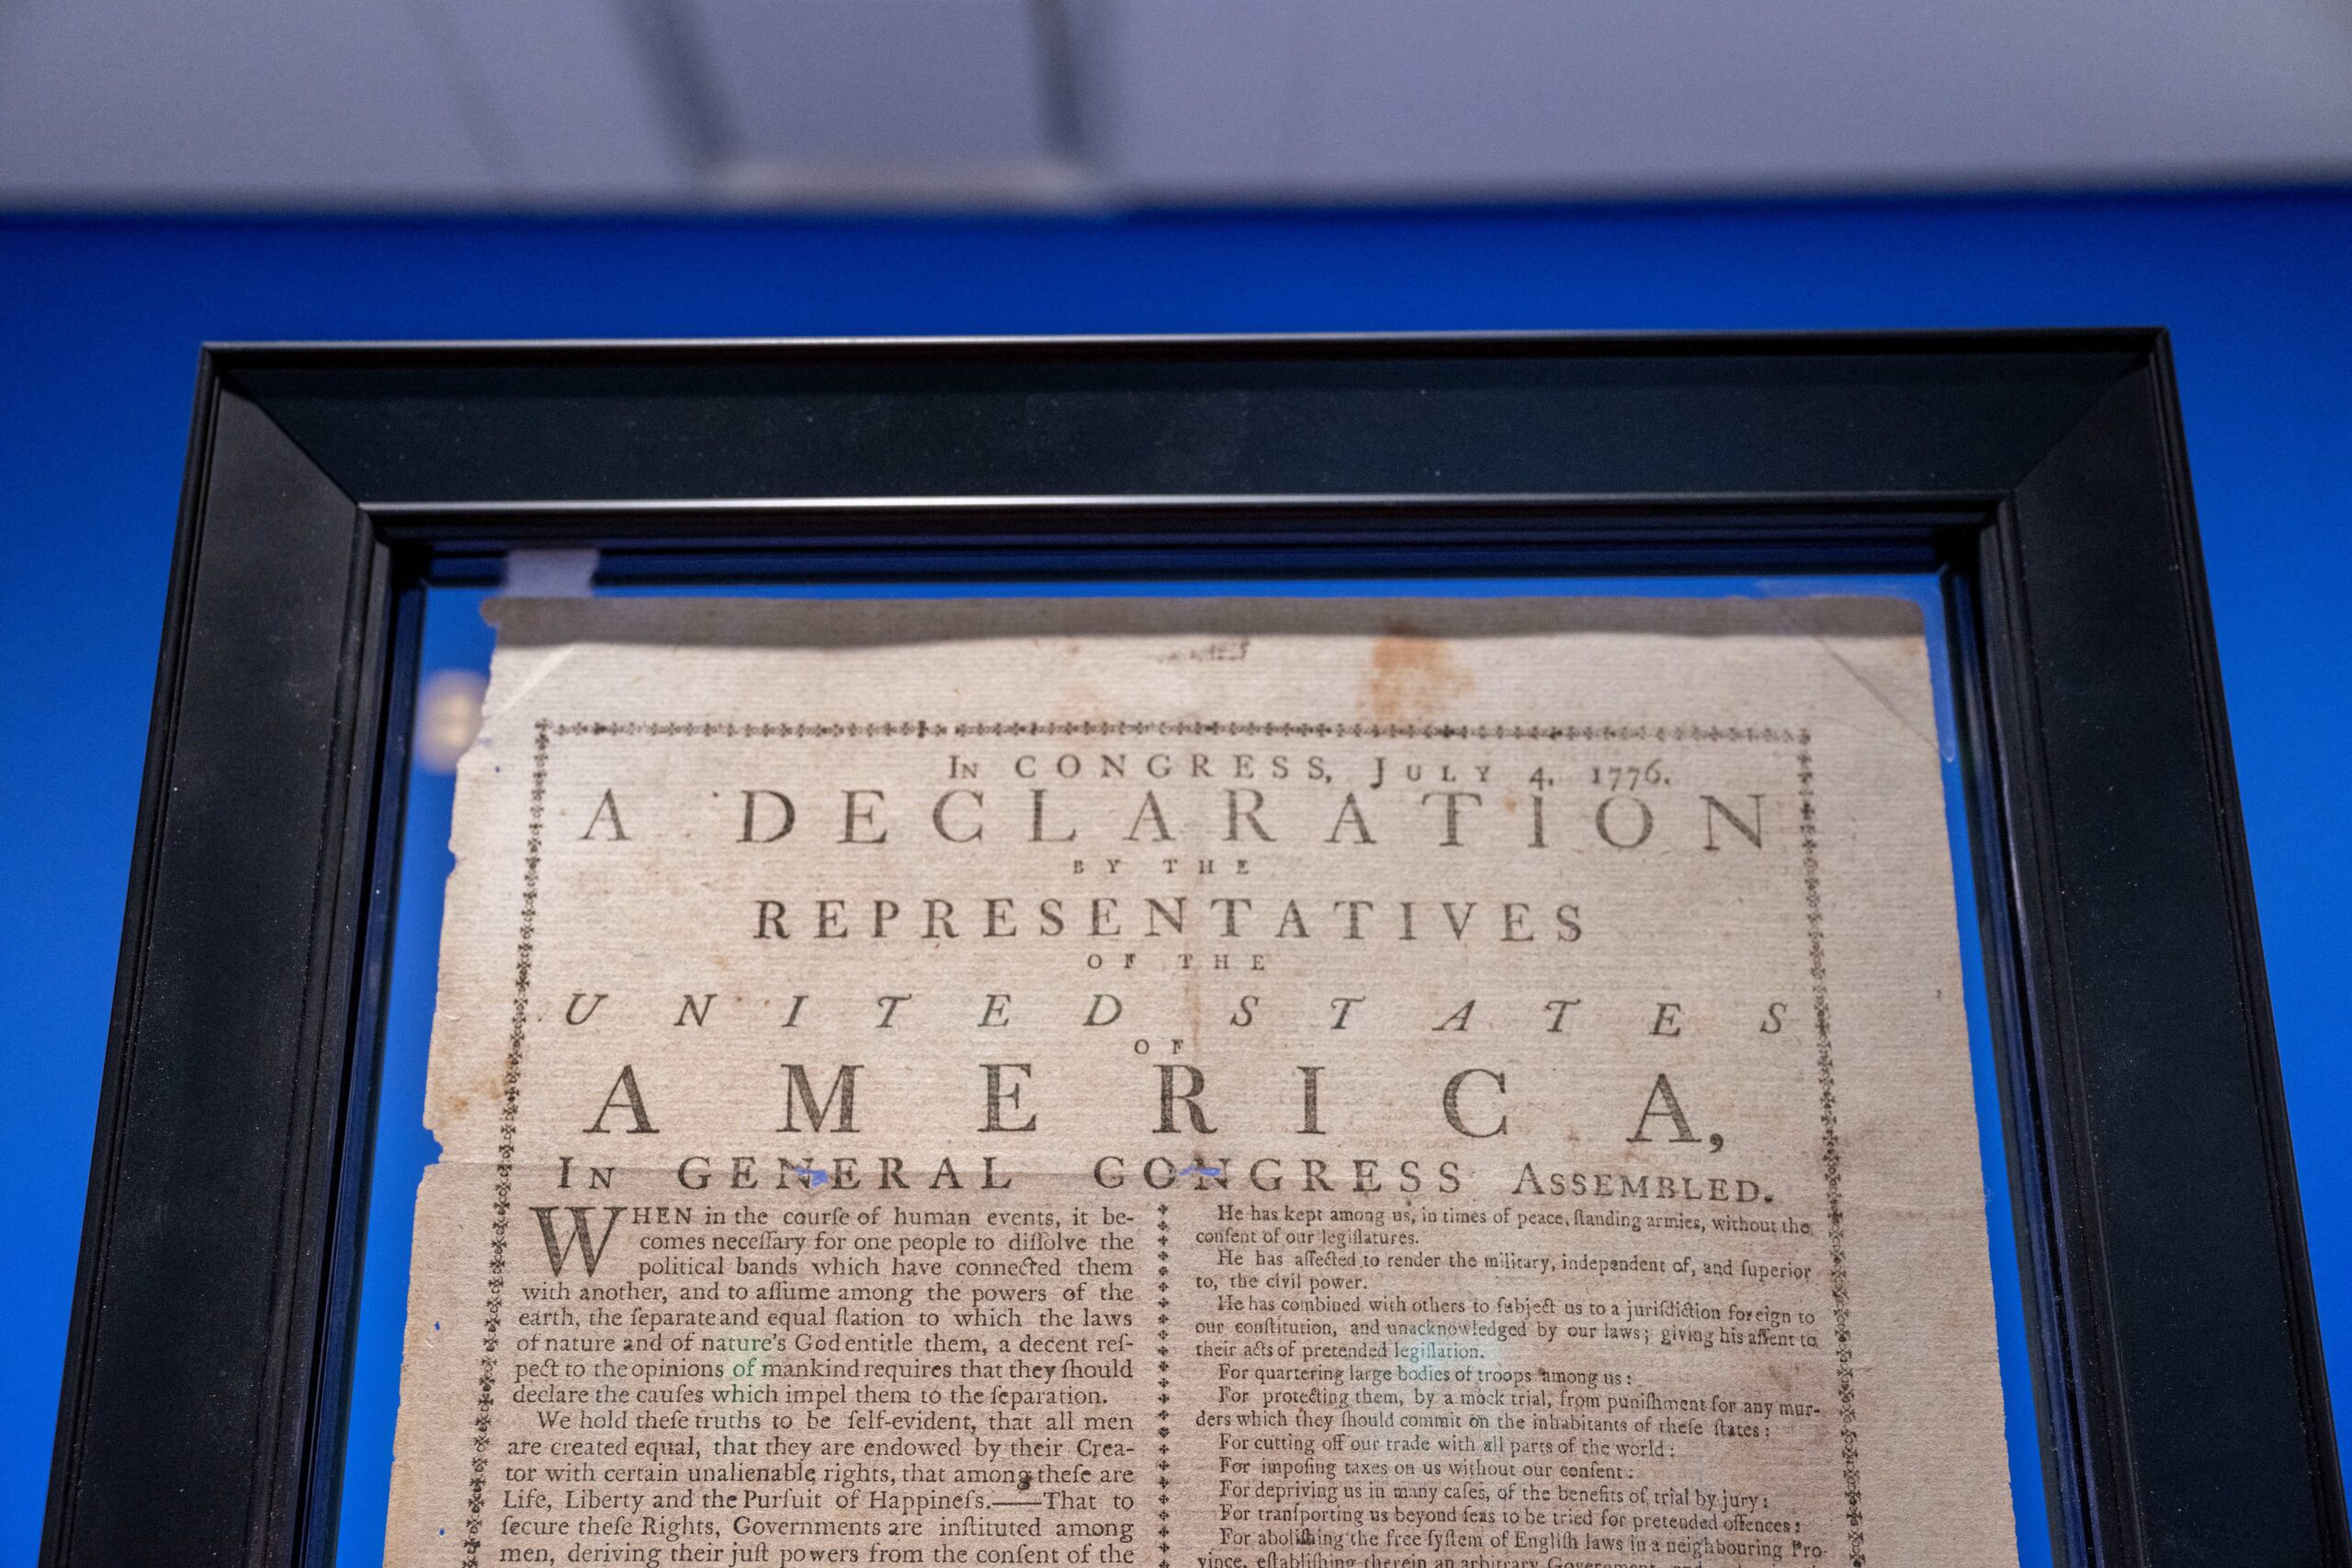 In CONGRESS, July 4, 1776.
A DECLARATION
BY THE
REPRESENTATIVES
OF THE
UNITED STATES
OF
AMERICA,
In GENERAL CONGRESS Assembled.
WHEN in the courſe of human events, it be-
comes neceſſary for one people to diſſolve the
political bands which have connected them
with another, and to aſſume among the powers of the
earth, the ſeparate and equal ſtation to which the laws
of nature and of nature's God entitle them, a decent reſ-
pect to the opinions of mankind requires that they ſhould
declare the cauſes which impel them to the ſeparation.
We hold theſe truths to be ſelf-evident, that all men
are created equal, that they are endowed by their Crea-
tor with certain unalienable rights, that among theſe are
Life, Liberty and the Purſuit of Happineſs.——That to
ſecure theſe Rights, Governments are inſtituted among
men, deriving their juſt powers from the conſent of the
He has kept among us, in times of peace, ſtanding armies, without the
conſent of our legiſlatures.
He has affected to render the military, independent of, and ſuperior
to, the civil power.
He has combined with others to ſubject us to a juriſdiction foreign to
our conſtitution, and unacknowledged by our laws; giving his aſſent to
their acts of pretended legiſlation.
For quartering large bodies of troops among us:
For protecting them, by a mock trial, from puniſhment for any mur-
ders which they ſhould commit on the inhabitants of theſe ſtates:
For cutting off our trade with all parts of the world:
For impoſing taxes on us without our conſent:
For depriving us in many caſes, of the benefits of trial by jury:
For tranſporting us beyond ſeas to be tried for pretended offences:
For aboliſhing the free ſyſtem of English laws in a neighbouring Pro-
vince, eſtabliſhing therein an arbitrary Government, and